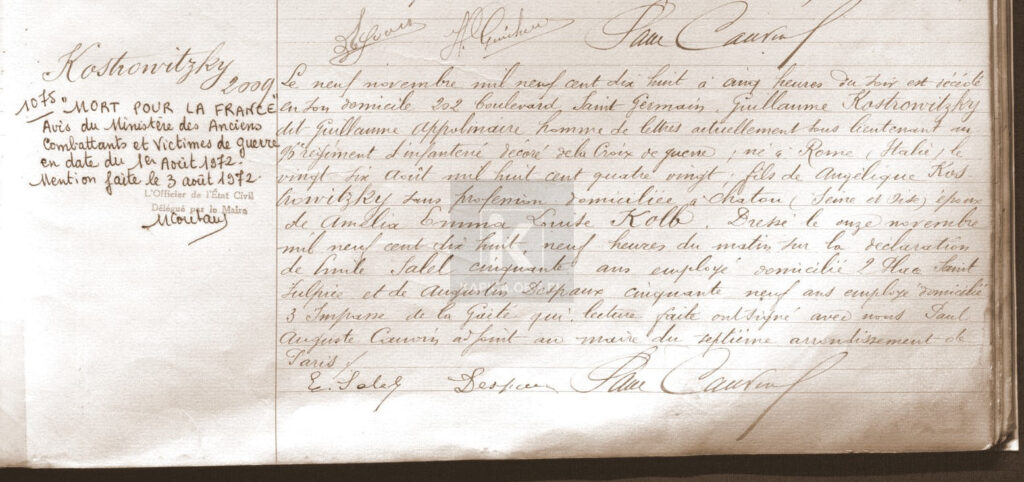 Kostrowitzky
2009
1075 "MORT POUR LA FRANCE"
Avis du Ministère des Anciens
Combattants et Victimes de guerre
en date du 1er Août 1972.
Mention faite le 3 août 1972.
L'Officier de l'État Civil
Délégué par le Maire
Paul Cauvin
Le neuf novembre mil neuf cent dix huit à cinq heures du soir est décédé
en son domicile 202 boulevard Saint Germain, Guillaume Kostrowitzky
dit Guillaume Appolinaire homme de lettres actuellement sous lieutenant au
96e régiment d'infanterie décoré de la Croix de guerre ; né à Rome (Italie) le
vingt six Août mil huit cent quatre vingt ; fils de Angélique Kos-
trowitzky sans profession domiciliée à Chatou (Seine et Oise) époux
de Amélia Emma Louise Kolb. Dressé le onze novembre
mil neuf cent dix huit, neuf heures du matin sur la déclaration
de Emile Salet cinquante ans employé domicilié 2 Place Saint
Sulpice et de Augustin Despaux cinquante neuf ans employé domicilié
3 Impasse de la Gaîté qui, lecture faite ont signé avec nous Paul
Auguste Cauvin adjoint au maire du septième arrondissement de
Paris
E. Salet Despaux Paul Cauvin